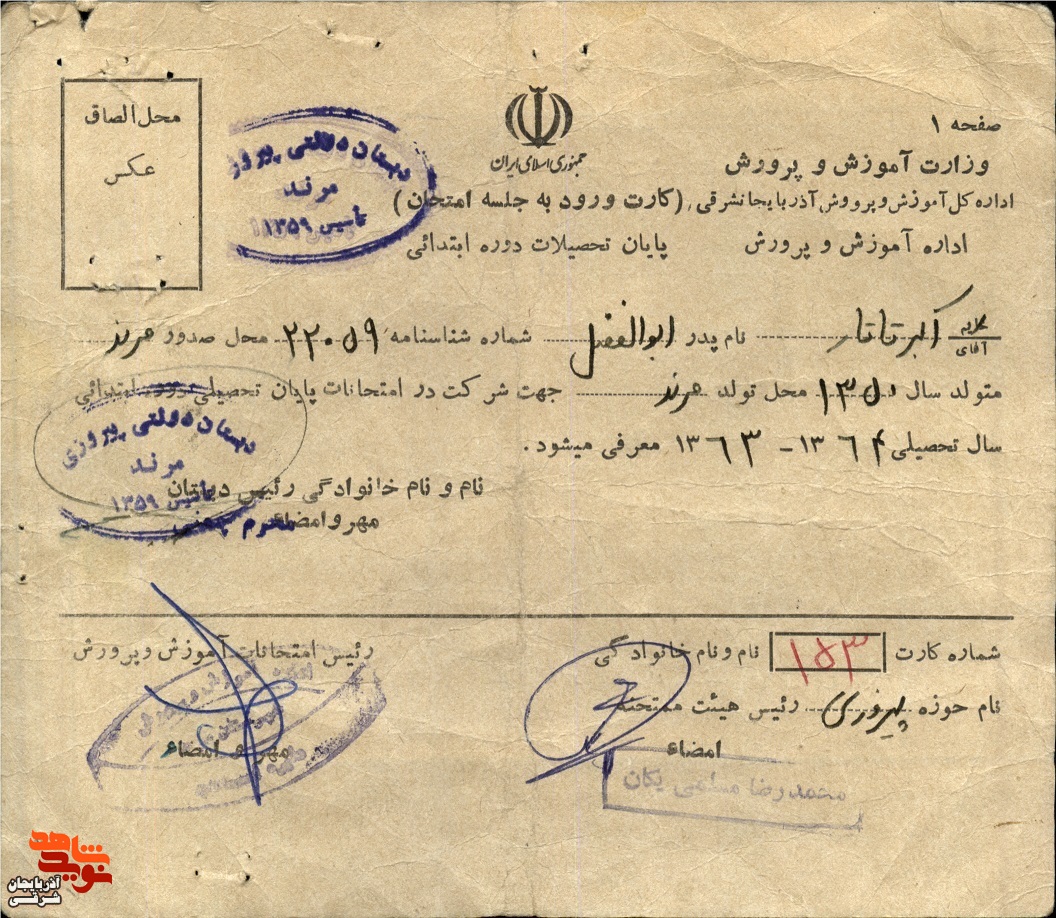 صفحه ۱
جمهوری اسلامی ایران
محل الصاق
عکس
وزارت آموزش و پرورش
اداره کل آموزش و پرورش آذربایجانشرقی (کارت ورود به جلسه امتحان)
اداره آموزش و پرورش پایان تحصیلات دوره ابتدائی
دبستان دولتی پیروزی
مرند
تأسیس ۱۳۵۹
آقای اکبر تاتار نام پدر ابوالفضل شماره شناسنامه ۲۲۰۵۹ محل صدور مرند
متولد سال ۱۳۵۰ محل تولد مرند جهت شرکت در امتحانات پایان تحصیلی دوره ابتدائی
سال تحصیلی ۱۳۶۴ - ۱۳۶۳ معرفی میشود.
دبستان دولتی پیروزی
مرند
تأسیس ۱۳۵۹
نام و نام خانوادگی رئیس دبستان
مهر و امضاء
شماره کارت ۱۵۳ نام و نام خانوادگی
رئیس امتحانات آموزش و پرورش
نام حوزه پیروزی رئیس هیئت ممتحنه
امضاء
مهر و امضاء
محمدرضا یکان
شاهد
نوید
آذربایجان
شرقی